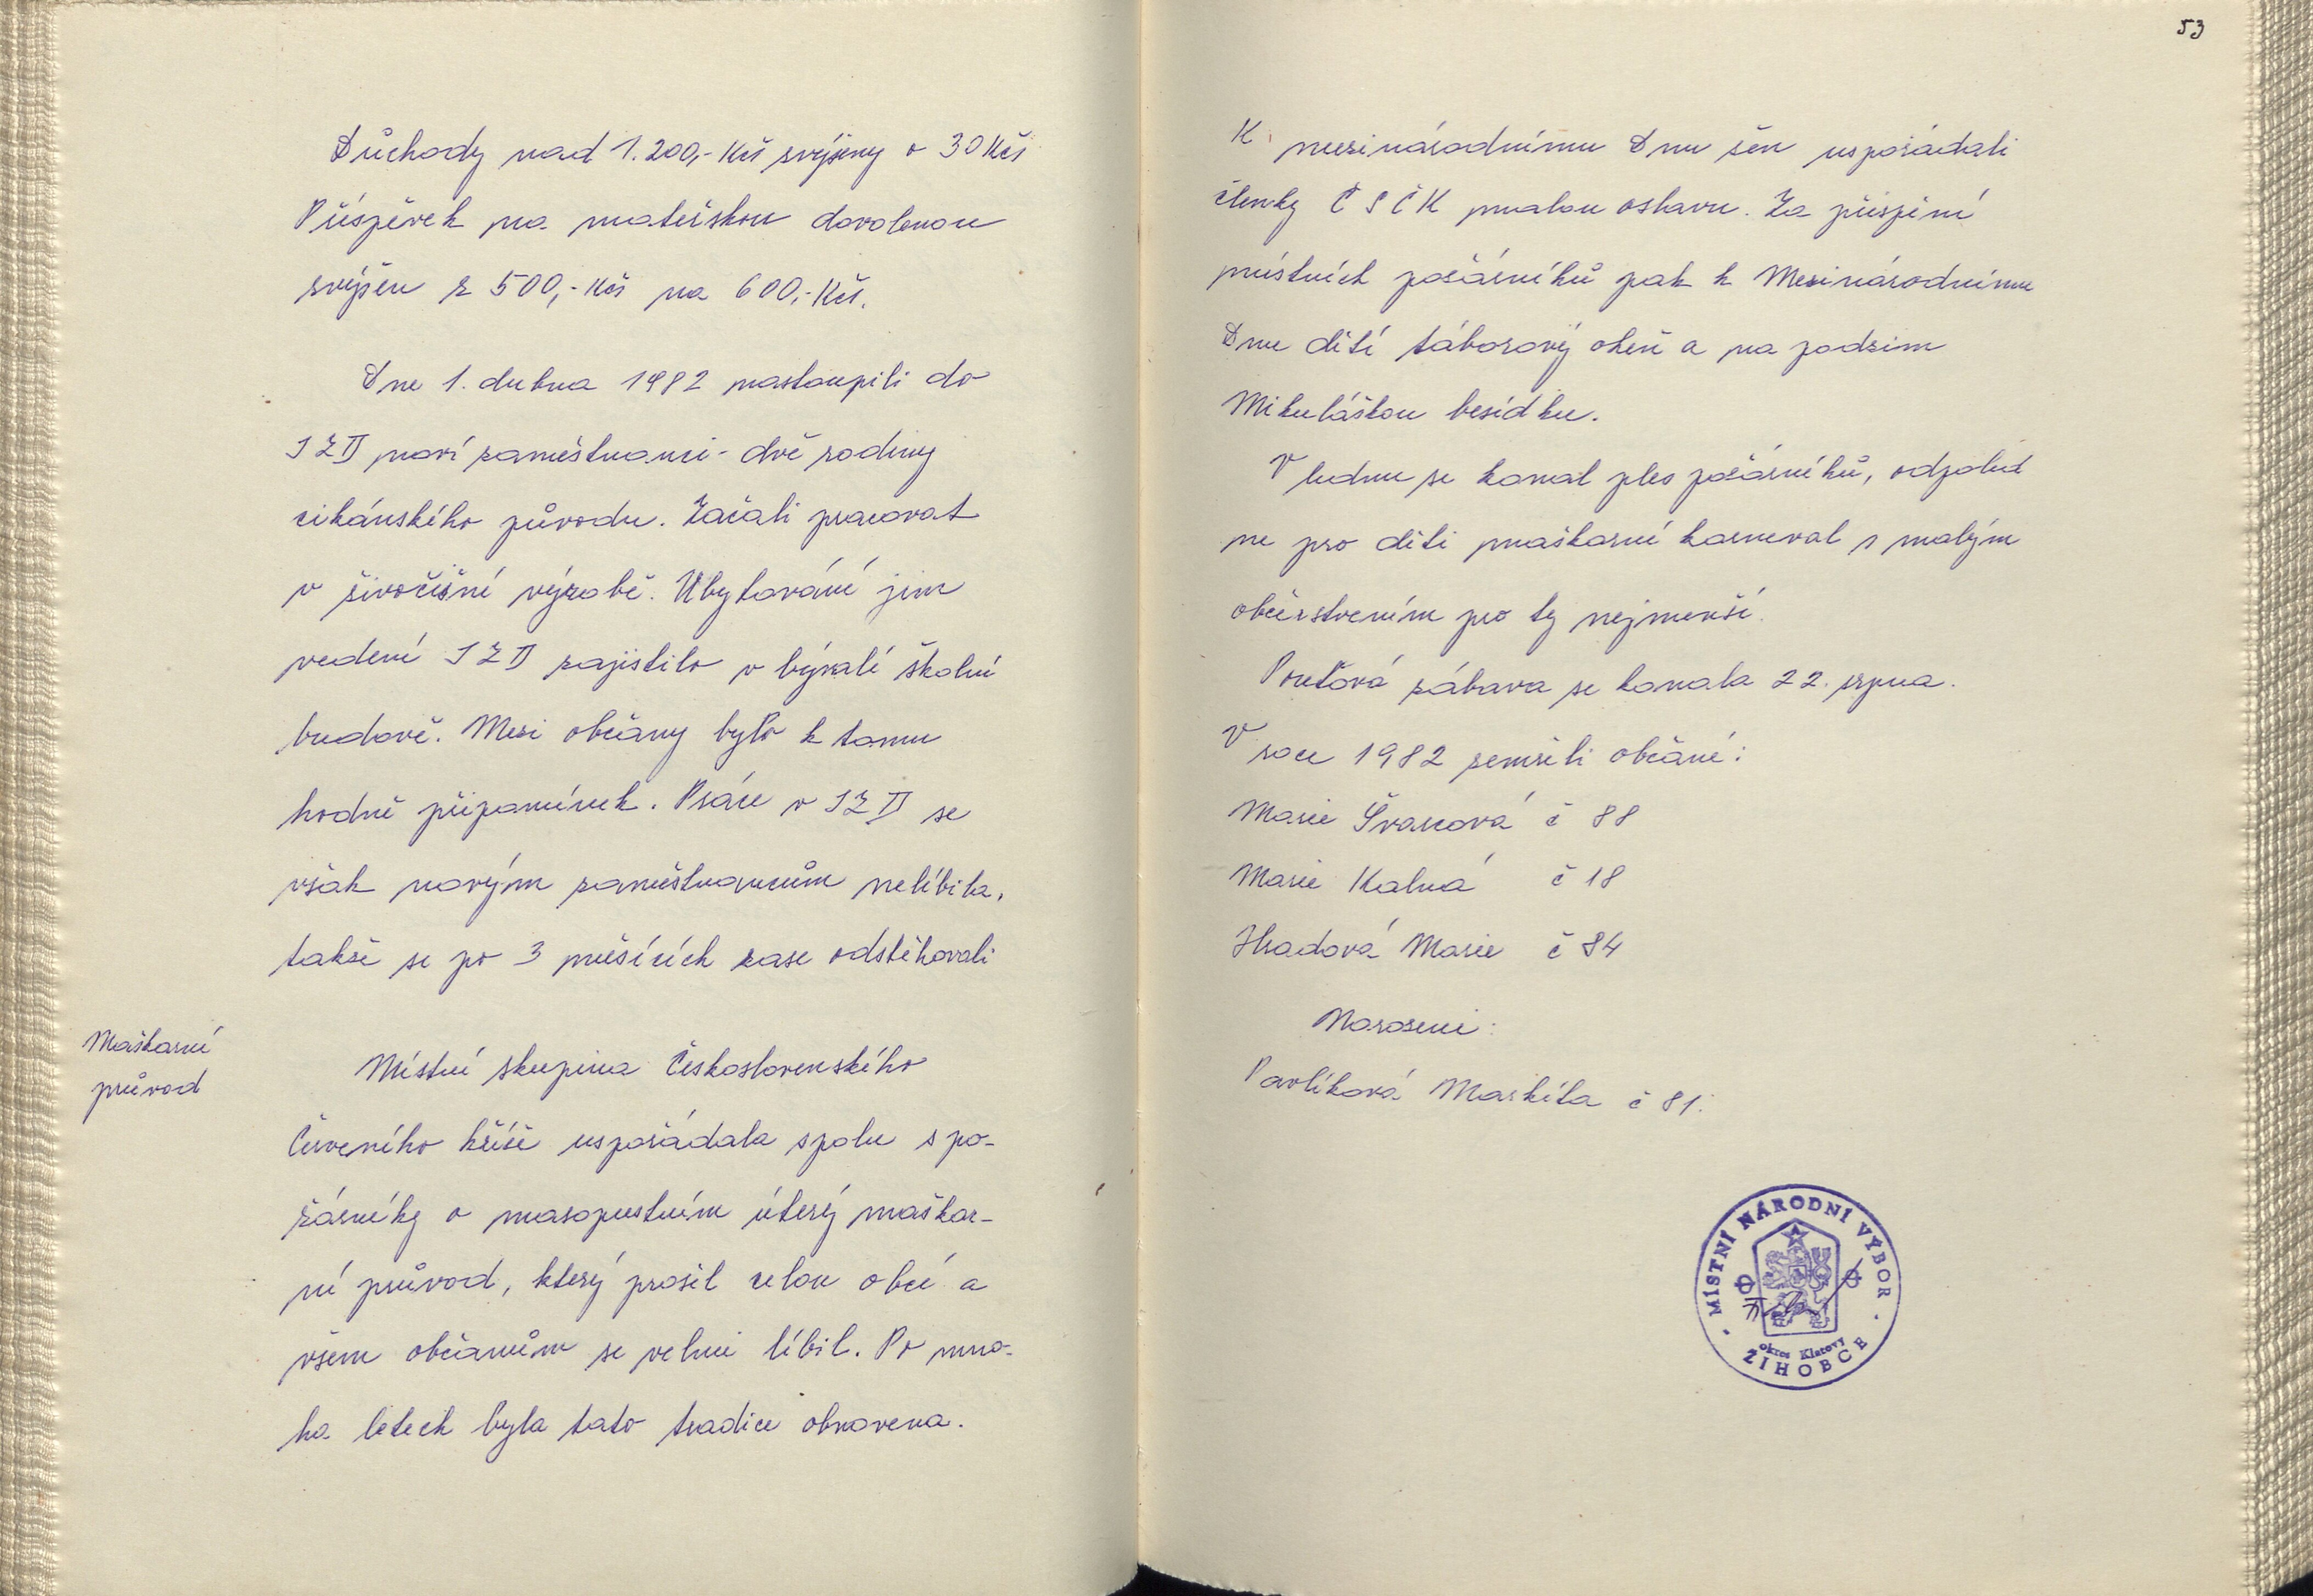 Důchody nad 1.200,- Kčs zvýšeny o 30 Kčs
Příspěvek na mateřskou dovolenou
zvýšen z 500,- Kčs na 600,- Kčs.
Dne 1. dubna 1982 nastoupili do
JZD noví zaměstnanci - dvě rodiny
cikánského původu. Začali pracovat
v živočišné výrobě. Ubytování jim
vedení JZD zajistilo v bývalé školní
budově. Mezi občany bylo k tomu
hodně připomínek. Práce v JZD se
však novým zaměstnancům nelíbila,
takže se po 3 měsících zase odstěhovali
Maškarní
průvod
Místní skupina Československého
Červeného kříže uspořádala spolu s po-
žárníky o masopustním úterý maškar-
ní průvod, který prošel celou obcí a
všem občanům se velmi líbil. Po mno-
ha letech byla tato tradice obnovena.
53
K mezinárodnímu Dnu žen uspořádali
členky ČSČK malou oslavu. Za přispění
místních požárníků pak k Mezinárodnímu
Dnu dětí táborový oheň a na podzim
Mikulášskou besídku.
V lednu se konal ples požárníků, odpoled
ne pro děti maškarní karneval s malým
občerstvením pro ty nejmenší.
Pouťová zábava se konala 22. srpna.
V roce 1982 zemřeli občané:
Marie Švarcová č 88
Marie Kalná č 18
Hradová Marie č 84
Narozeni:
Pavlíková Markéta č 81.
MÍSTNÍ NÁRODNÍ VÝBOR
okres Klatovy
ŽIHOBCE